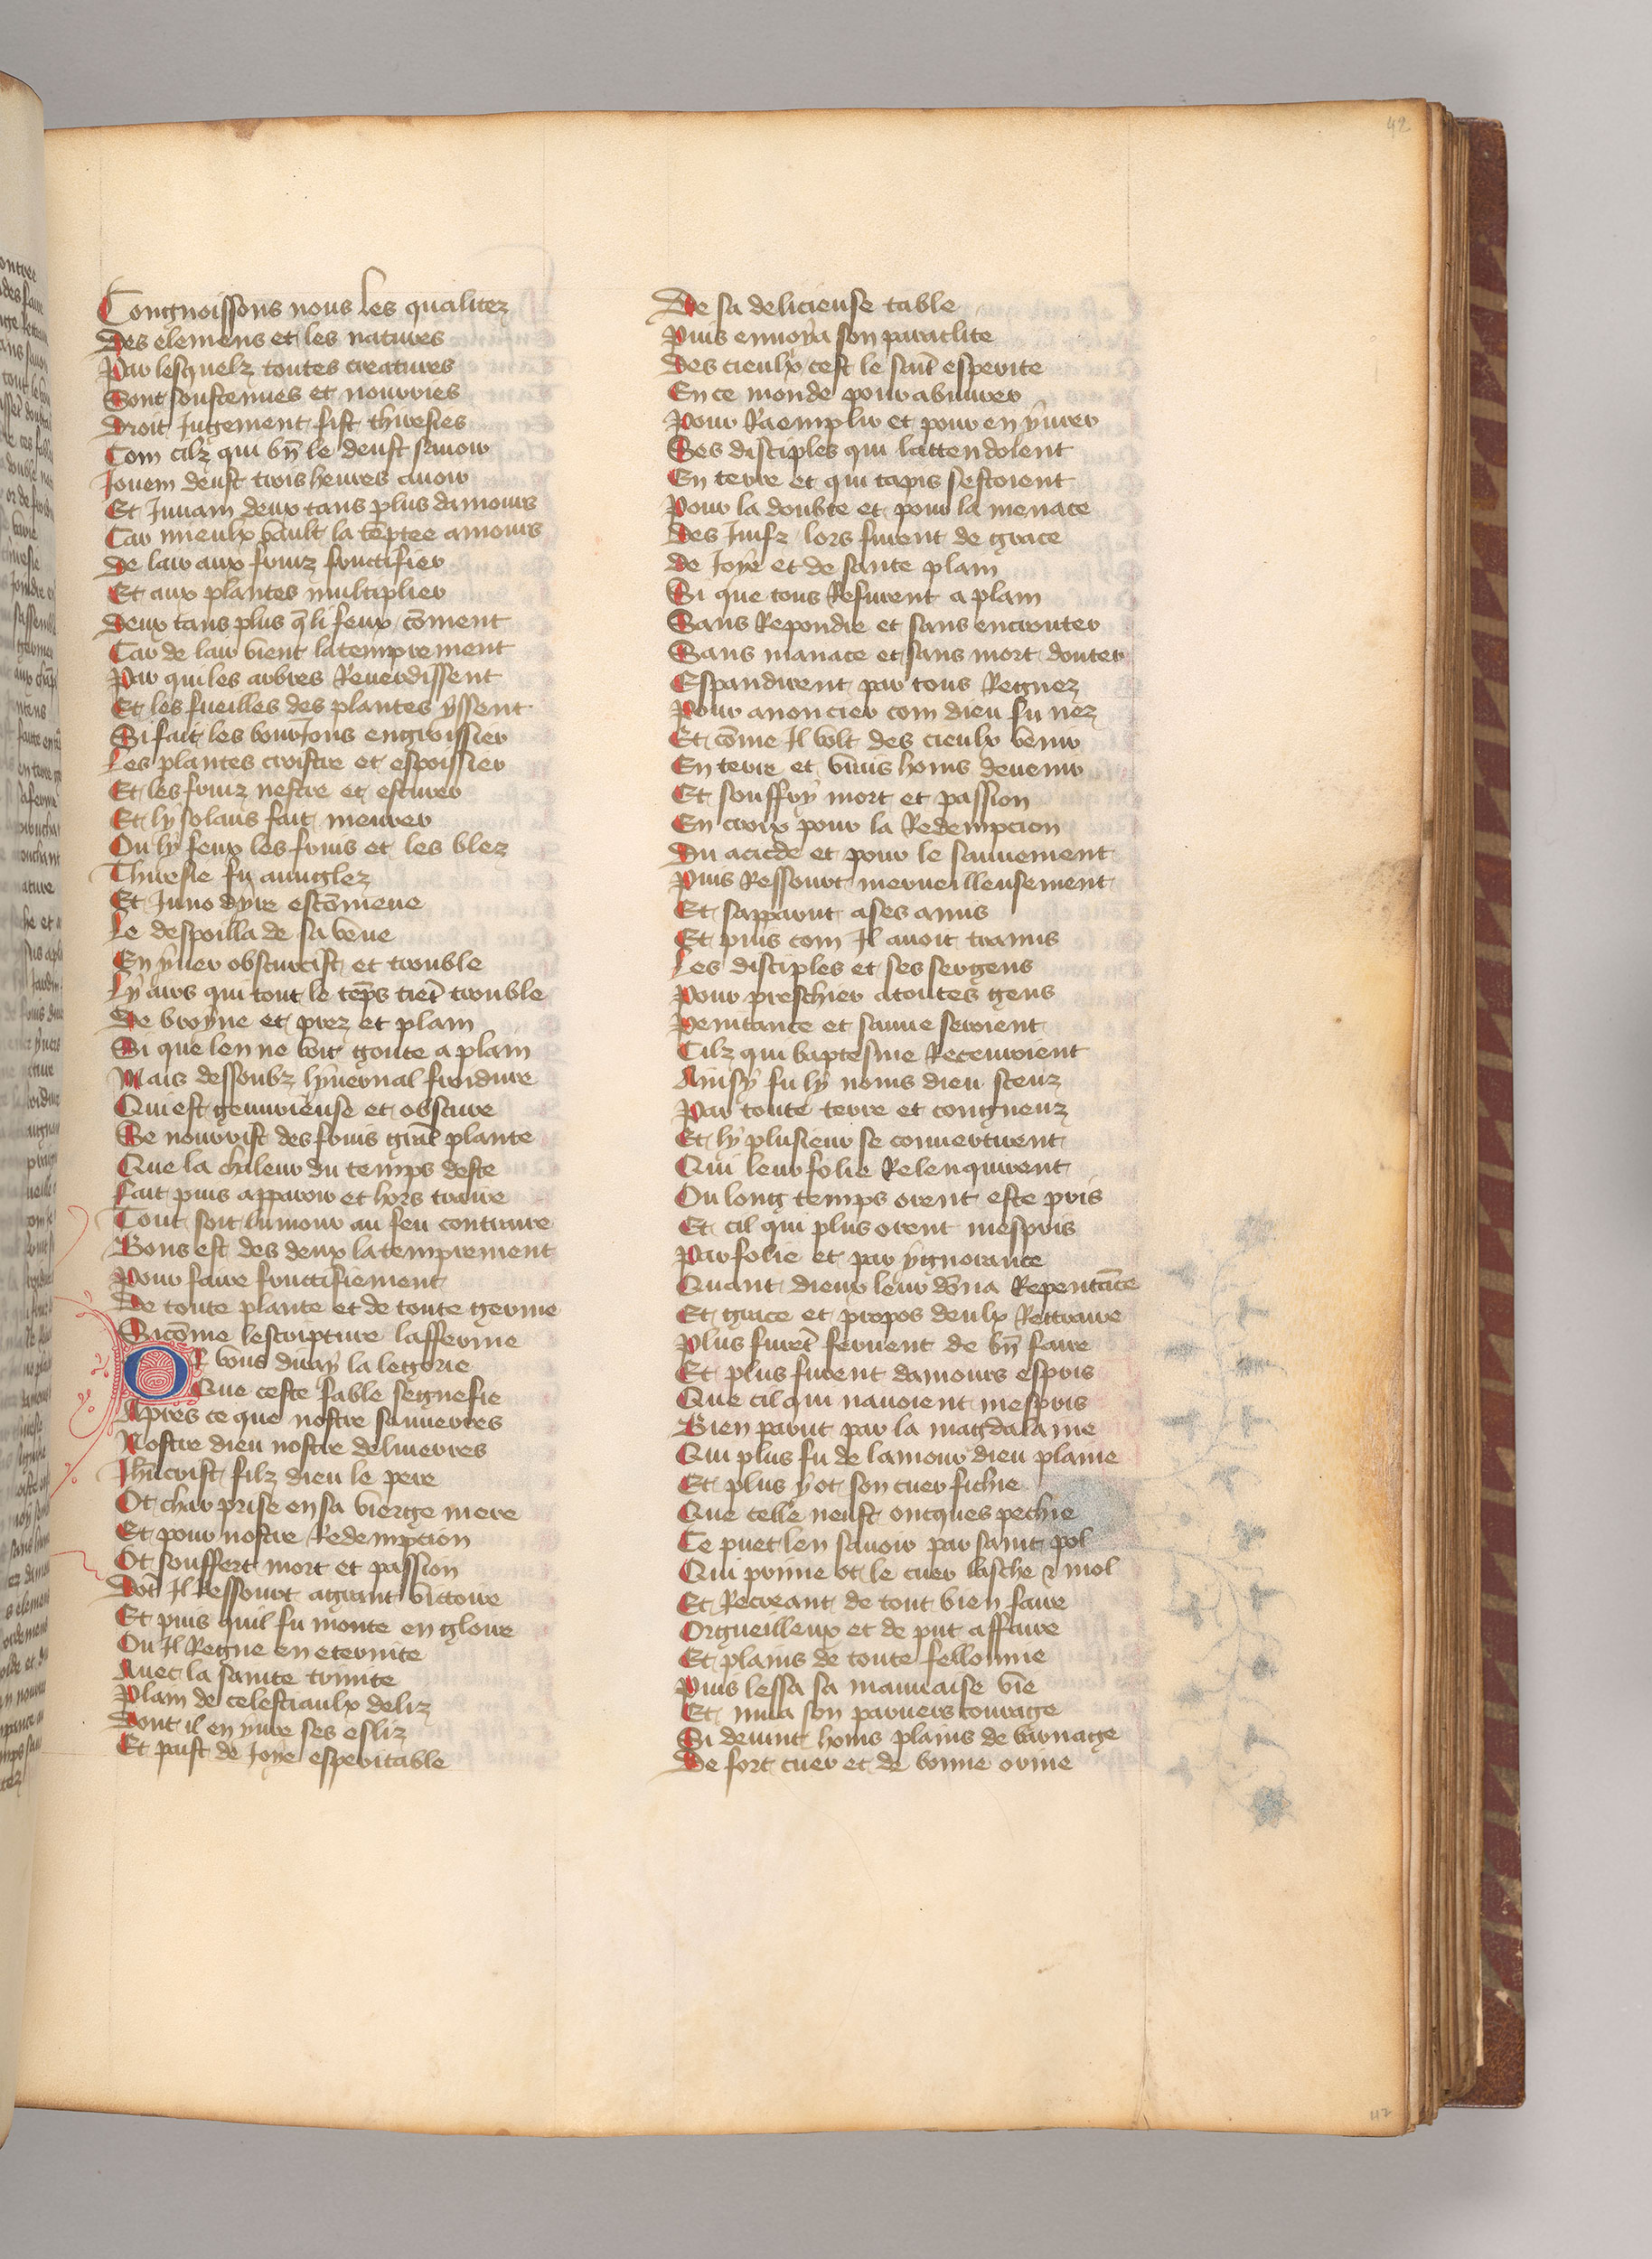 42
Congnoissons nous les qualitez
Des elemens et les natures
Par lesquelz toutes creatures
Sont soustenues et nourries
Droit Jugement fist thiresies
Com cilz qui bn̄ le deust sauoir
Jouem deust trois heures auoir
Et Junam deux tans plus damours
Car mieulx vault la tēptee amours
De lair aux fruiz fructifier
Et aux plantes multiplier
Deux tans plus q̄ li feux cōment
Car de lair vient latemprement
Par qui les arbres Reuerdissent
Et les fueilles des plantes yssent
Si fait les bourJons engroissier
Les plantes croistre et espoissier
Et les fruiz nestre et escurer
Et ly solaus fait meurer
Ou ly feux les fruis et les blez
Thiresie fu auuglez
Et Juno dyre escōmeue
Le despoilla de sa veue
En yuer obscurcist et trouble
Ly airs qui tout le tēps tiēt trouble
De broyne et prez et plain
Si que len ne voit goute a plain
Mais dessoubz lyuernal froidure
Qui est genurieuse et obscure
Se nourrist des fruis grāt plante
Que la chaleur du temps deste
Fait puis apparoir et hors traire
Tout soit lumour au feu contraire
Bons est des deux latemprement
Pour faire fructifiement
De toute plante et de toute germe
Sicōme lescripture lafferme
Or vous diray la legorie
Que ceste fable segnefie
Apres ce que nostre sauuerres
Nostre dieu nostre deliuerres
Jhūcrist filz dieu le pere
Ot char prise en sa vierge mere
Et pour nostre Redempcion
Ot souffert mort et passion
Dōt Il Ressourt agrant victoire
Et puis quil fu monte en gloire
Ou Il Regne en eternite
Auec la sainte trinite
Plain de celestiaulx deliz
Dont il en yure ses esliz
Et paist de Joye esperitable
De sa delicieuse table
Puis enuoya son paraclite
Des cieulx cest le sāīt esperite
En ce monde pour abuurer
Pour Raemplir et pour en yurer
Ses disciples qui lattendoient
En terre et qui tapis sestoient
Pour la doubte et pour la menace
Des Juifz lors furent de grace
De Joye et de sante plain
Si que tous Refurent a plain
Sans Repondre et sans encrouter
Sans manace et sans mort douter
Espandirent par tous Regnez
Pour anoncier com dieu fu nez
Et cōme Il volt des cieulx venir
En terre et vrais homs deuenir
Et souffry mort et passion
En croix pour la Redempcion
Du acicde et pour le sauuement
Puis Ressourt merueilleusement
Et sapparut ases amis
Et puis com Il auoit tramis
Les disciples et ses sergens
Pour preschier atoutes gens
Penitance et sauue seroient
Cilz qui baptesme Receuroient
Ainsy fu ly noms dieu sceuz
Par toute terre et congneuz
Et ly plusieur se conuertirent
Qui leur folie Relenquirent
Ou long temps orent este pris
Et cil qui plus orent mespris
Par folie et par ygnorance
Quant dieux leur dōna Repentāce
Et grace et propos deulx Rettraire
Plus furēt feruent de bn̄ faire
Et plus furent damours espris
Que cil qui nauoient mespris
Bien parut par la magdalaine
Qui plus fu de lamour dieu plaine
Et plus y ot son cuer fichie
Que celle neust oncques pechie
Ce puet len sauoir par saint pol
Qui prime ot le cuer lasche & mol
Et Recreant de tout bien faire
Orgueilleux et de put affaire
Et plains de toute fellonnie
Puis lessa sa mauuaise vie
Et mua son paruers courage
Si deuint homs plains de barnage
De fort cuer et de bonne orine
42